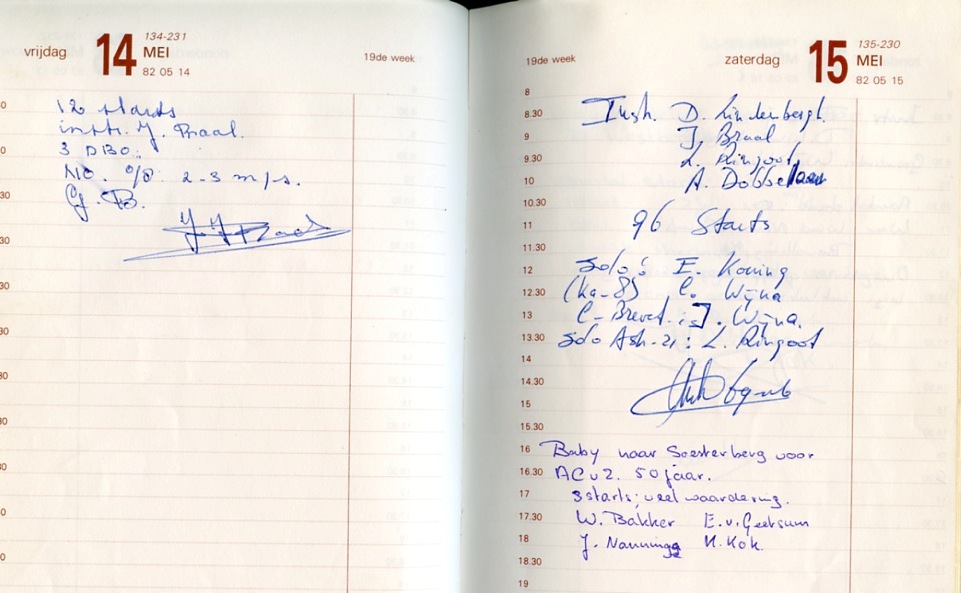 vrijdag 14 134-231
MEI
82 05 14
19de week
12 starts
instr. J. Braal.
3 DBO:
NO. 0/8 2-3 m/s.
G. B.
19de week
zaterdag 15 135-230
MEI
82 05 15
8
8.30
9
9.30
10
10.30
11
11.30
12
12.30
13
13.30
14
14.30
15
15.30
16
16.30
17
17.30
18
18.30
19
Instr. D. Lindenbergh.
J. Braal
L. Ringoot
A. Dobbelaar
96 Starts
Solo: E. Koning
(Ka-8) C. Wijna
C-Brevet: J. Wijna.
Solo Ask-21: L. Ringoot
Baby naar Soesterberg voor
ACvZ. 50 jaar.
3 starts; veel waardering.
W. Bakker E. v. Geersum
J. Nanninga H. Kok.